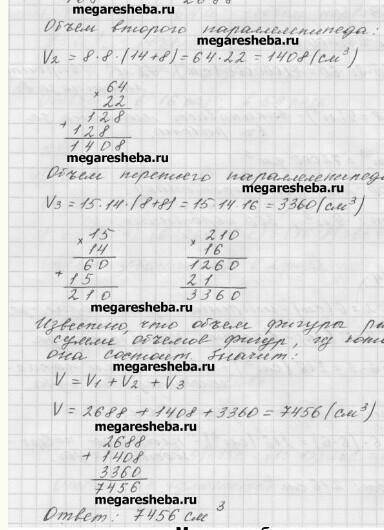 megaresheba.ru
Объем второго параллелепипеда:
megaresheba.ru
V2 = 8·8·(14+8) = 64·22 = 1408 (см³)
× 64
22
+ 128
128
1408
megaresheba.ru
Объем третьего параллелепипеда
megaresheba.ru
V3 = 15·14·(8+8) = 15·14·16 = 3360 (см³)
× 15 × 210
14 16
+ 60 1260
15 21
210 3360
megaresheba.ru
Известно, что объем фигуры
сумме объемов фигур, из
она состоит. Значит:
megaresheba.ru
V = V1 + V2 + V3
V = 2688 + 1408 + 3360 = 7456 (см³)
megaresheba.ru
2688
+ 1408
3360
7456
megaresheba.ru
Ответ: 7456 см³